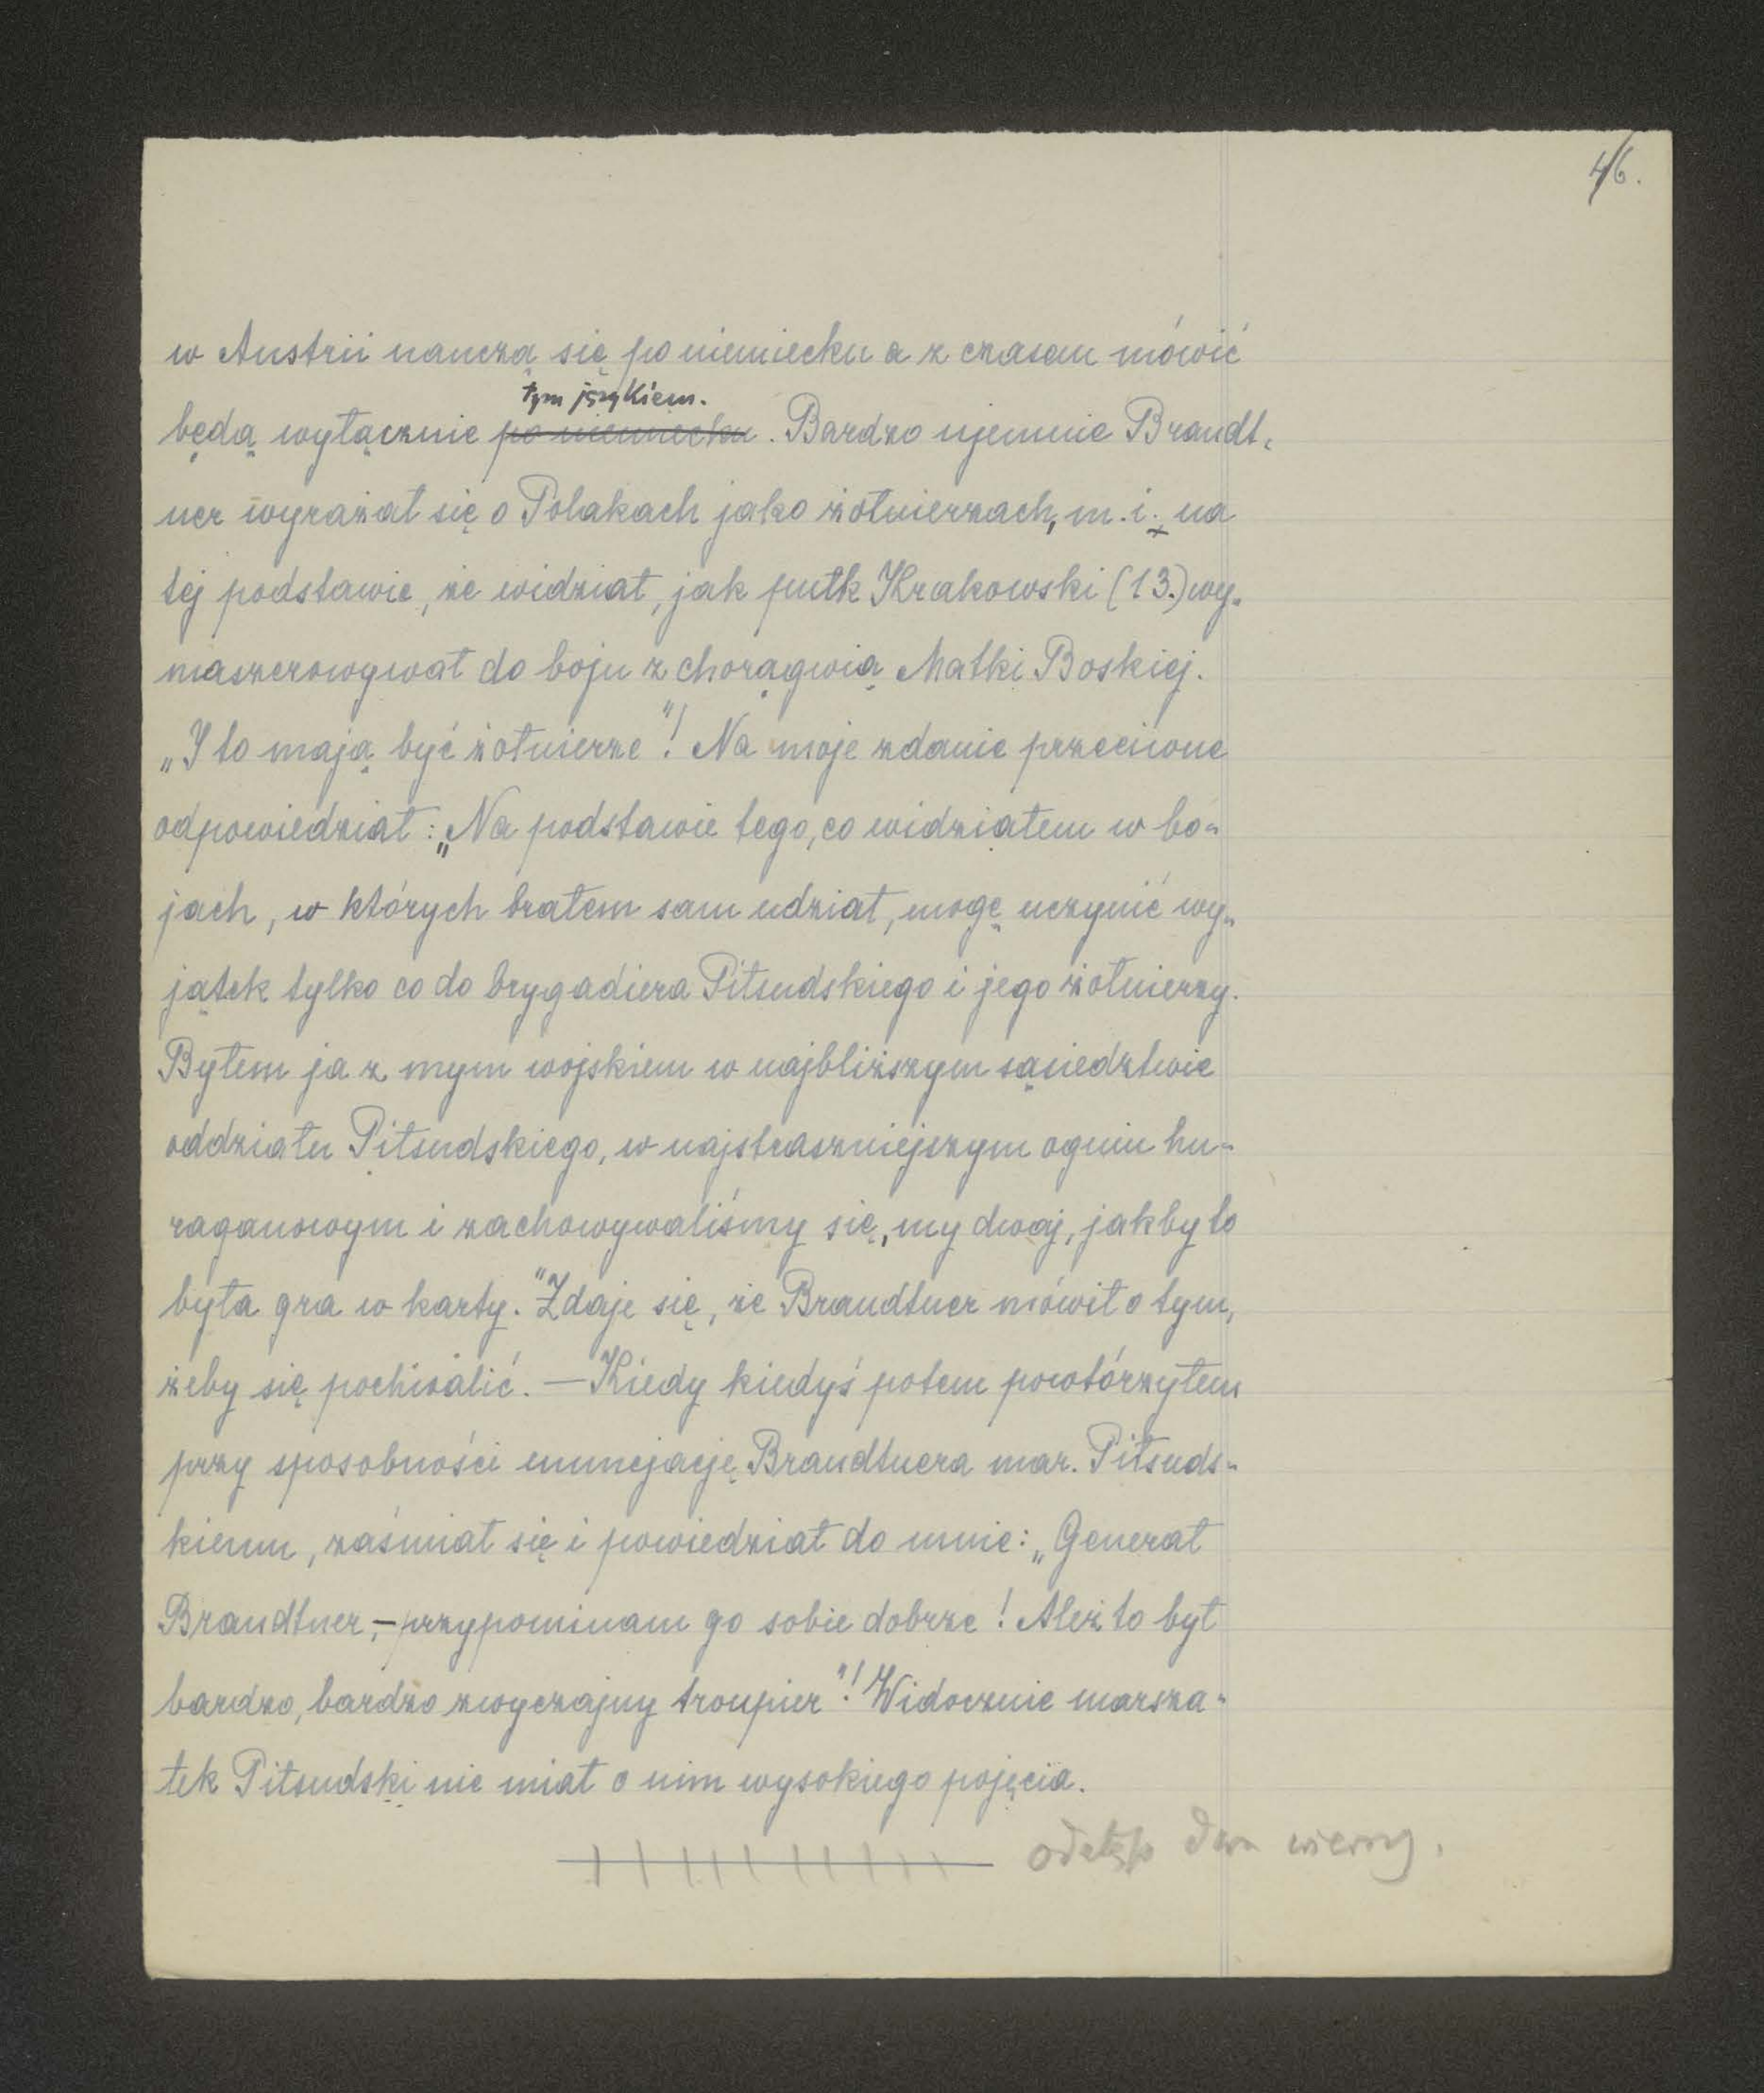 46.
w Austrii nauczą się po niemiecku a z czasem mówić
tym językiem.
będą wyłącznie po niemiecku. Bardzo ujemnie Brandt-
ner wyrażał się o Polakach jako żołnierzach, m. i. na
tej podstawie, że widział, jak pułk Krakowski (13.) wy-
maszerowywał do boju z chorągwią Matki Boskiej.
„I to mają być żołnierze"! Na moje zdanie przeciwne
odpowiedział: „Na podstawie tego, co widziałem w bo-
jach, w których brałem sam udział, mogę uczynić wy-
jątek tylko co do brygadiera Piłsudskiego i jego żołnierzy.
Byłem ja z mym wojskiem w najbliższym sąsiedztwie
oddziału Piłsudskiego, w najstraszniejszym ogniu hu-
raganowym i zachowywaliśmy się, my dwaj, jakby to
była gra w karty." Zdaje się, że Brandtner mówił o tym,
żeby się pochwalić. — Kiedy kiedyś potem powtórzyłem
przy sposobności enuncjację Brandtnera mar. Piłsuds-
kiemu, zaśmiał się i powiedział do mnie: „Generał
Brandtner, – przypominam go sobie dobrze! Ależ to był
bardzo, bardzo zwyczajny troupier"! Widocznie marsza-
łek Piłsudski nie miał o nim wysokiego pojęcia.
odstęp dwa wierszy.